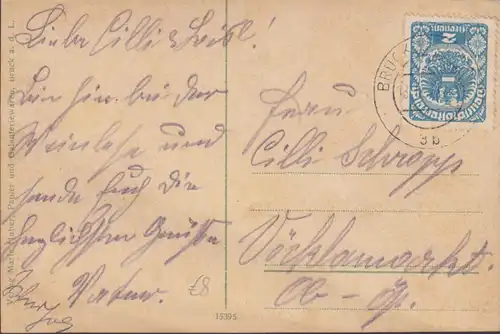 Liebe Cilli & Leisl!
Bin hier bei der
Weinlese und
sende Euch die
herzlichsten Grüsse
Vater.
Frau
Cilli Schropp
Vöcklamarkt.
Ob-Öst.
BRUCK
3b
2
Deutschösterreich
Papier und Galanteriewaren, Bruck a. d. L.
15395
€8